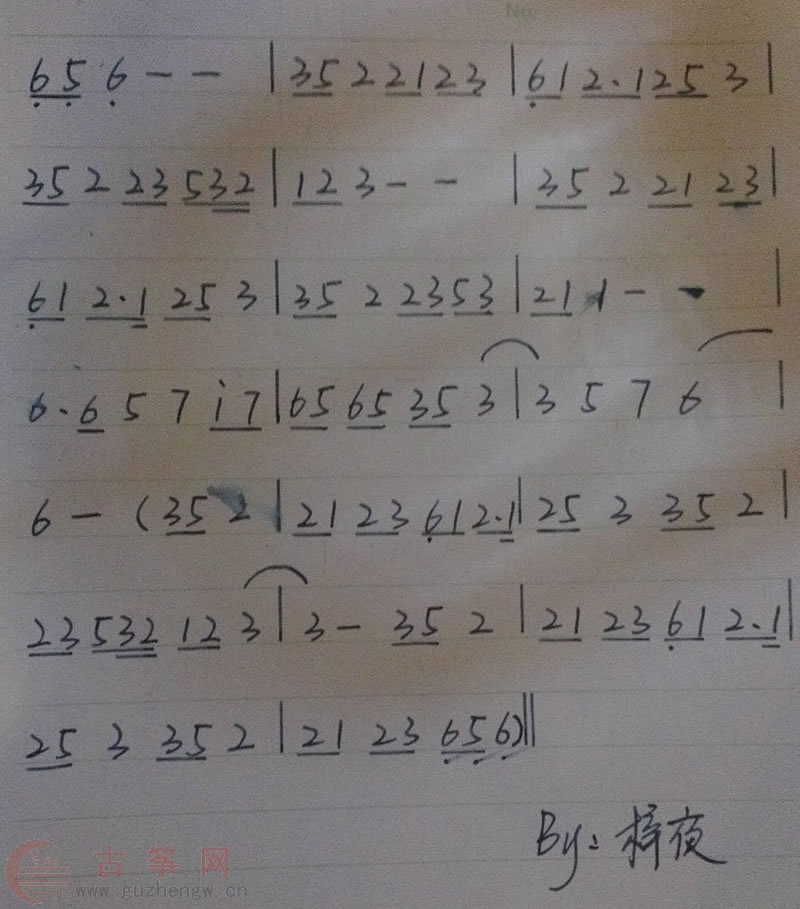 No.
656-- | 35 2 21 23 | 61 2·1 25 3 |
35 2 23 532 | 12 3-- | 35 2 21 23 |
61 2·1 25 3 | 35 2 23 53 | 21 1-- |
6·6 5 7 i7 | 65 65 35 3 | 3 5 7 6 |
6-(35 2 | 21 23 61 2·1 | 25 3 35 2 |
23 532 12 3 | 3- 35 2 | 21 23 61 2·1 |
25 3 35 2 | 21 23 65 6)‖
By: 梓夜
古筝网
www.guzhengw.cn